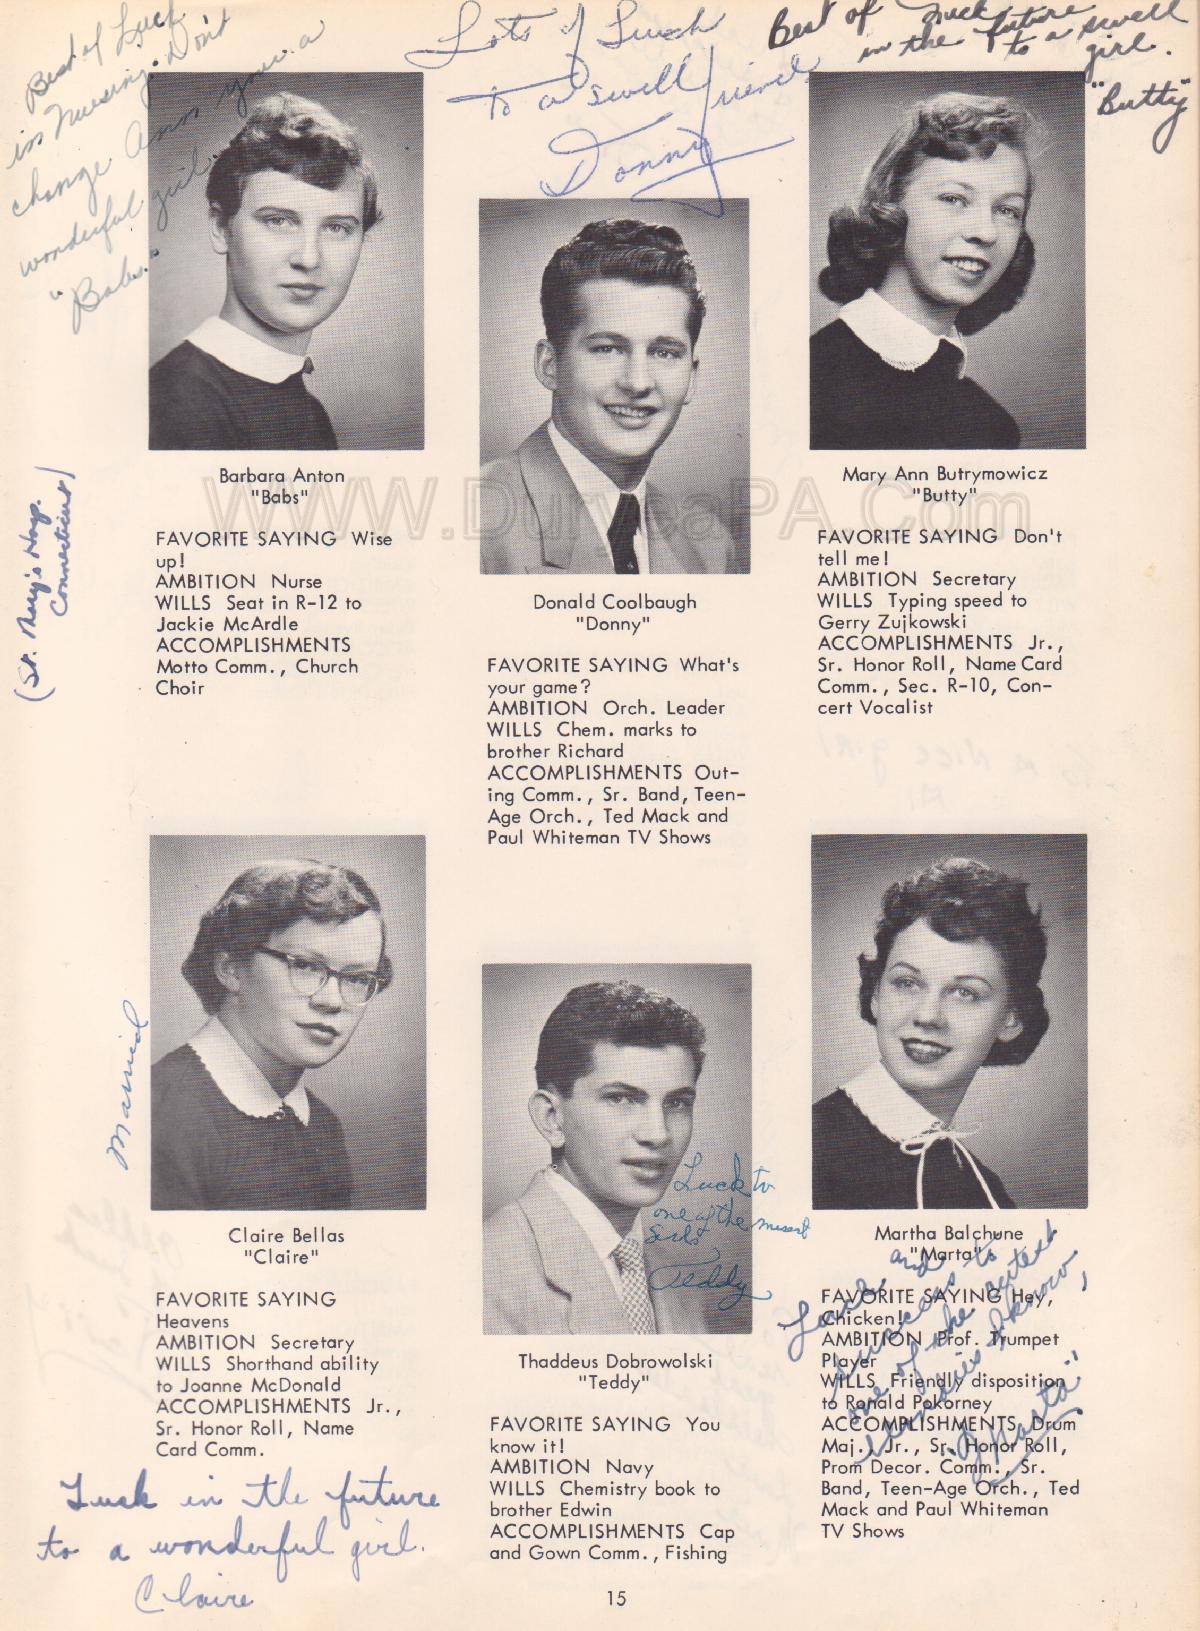 Best of Luck
in Nursing. Don't
change Ann your a
wonderful girl.
"Babs"
Lots of Luck
to a swell friend
Donny
Best of Luck
in the future
to a swell
girl.
"Butty"
(St. Mary's Hosp.
Connecticut)
Barbara Anton
"Babs"
FAVORITE SAYING Wise
up!
AMBITION Nurse
WILLS Seat in R-12 to
Jackie McArdle
ACCOMPLISHMENTS
Motto Comm., Church
Choir
WWW.DuryeaPA.Com
Donald Coolbaugh
"Donny"
FAVORITE SAYING What's
your game?
AMBITION Orch. Leader
WILLS Chem. marks to
brother Richard
ACCOMPLISHMENTS Out-
ing Comm., Sr. Band, Teen-
Age Orch., Ted Mack and
Paul Whiteman TV Shows
Mary Ann Butrymowicz
"Butty"
FAVORITE SAYING Don't
tell me!
AMBITION Secretary
WILLS Typing speed to
Gerry Zujkowski
ACCOMPLISHMENTS Jr.,
Sr. Honor Roll, Name Card
Comm., Sec. R-10, Con-
cert Vocalist
Married
Claire Bellas
"Claire"
FAVORITE SAYING
Heavens
AMBITION Secretary
WILLS Shorthand ability
to Joanne McDonald
ACCOMPLISHMENTS Jr.,
Sr. Honor Roll, Name
Card Comm.
Luck in the future
to a wonderful girl.
Claire
Luck to
one of the
Teddy
Thaddeus Dobrowolski
"Teddy"
FAVORITE SAYING You
know it!
AMBITION Navy
WILLS Chemistry book to
brother Edwin
ACCOMPLISHMENTS Cap
and Gown Comm., Fishing
Martha Balchune
"Marta"
FAVORITE SAYING Hey,
Chicken!
AMBITION Prof. Trumpet
Player
WILLS Friendly disposition
to Ronald Pokorney
ACCOMPLISHMENTS Drum
Maj., Jr., Sr. Honor Roll,
Prom Decor. Comm., Sr.
Band, Teen-Age Orch., Ted
Mack and Paul Whiteman
TV Shows
and
success to
one of the cutest
I know,
"Marta"
15